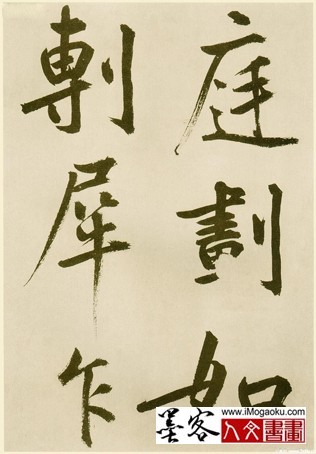 庭劃如
剸犀乍
墨客
www.iMogaoku.com
人文書畫